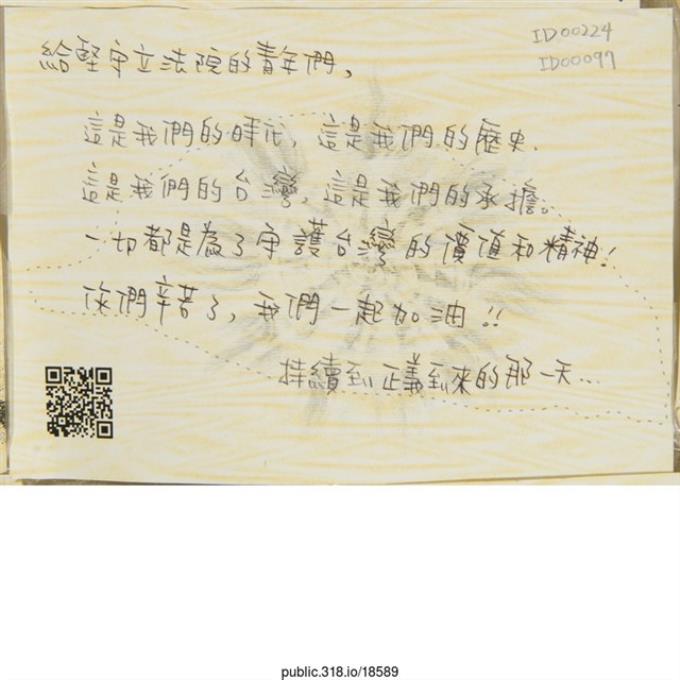 ID00224
ID00097
給堅守立法院的青年們,
這是我們的時代, 這是我們的歷史.
這是我們的台灣, 這是我們的承擔。
一切都是為了守護台灣的價值和精神!
你們辛苦了, 我們一起加油!!
持續到正義到來的那一天...
public.318.io/18589